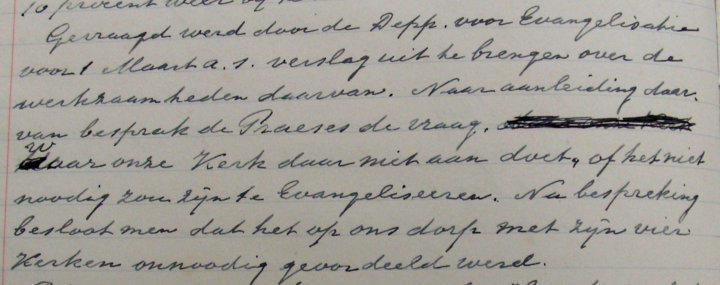 10 procent weer
Gevraagd werd door de Depp. voor Evangelisatie
voor 1 Maart a. s. verslag uit te brengen over de
werkzaamheden daarvan. Naar aanleiding daar-
van besprak de Praeses de vraag,
waar onze Kerk daar niet aan doet, of het niet
noodig zou zijn te Evangeliseeren. Na bespreking
besloot men dat het op ons dorp met zijn vier
Kerken onnoodig geoordeeld werd.